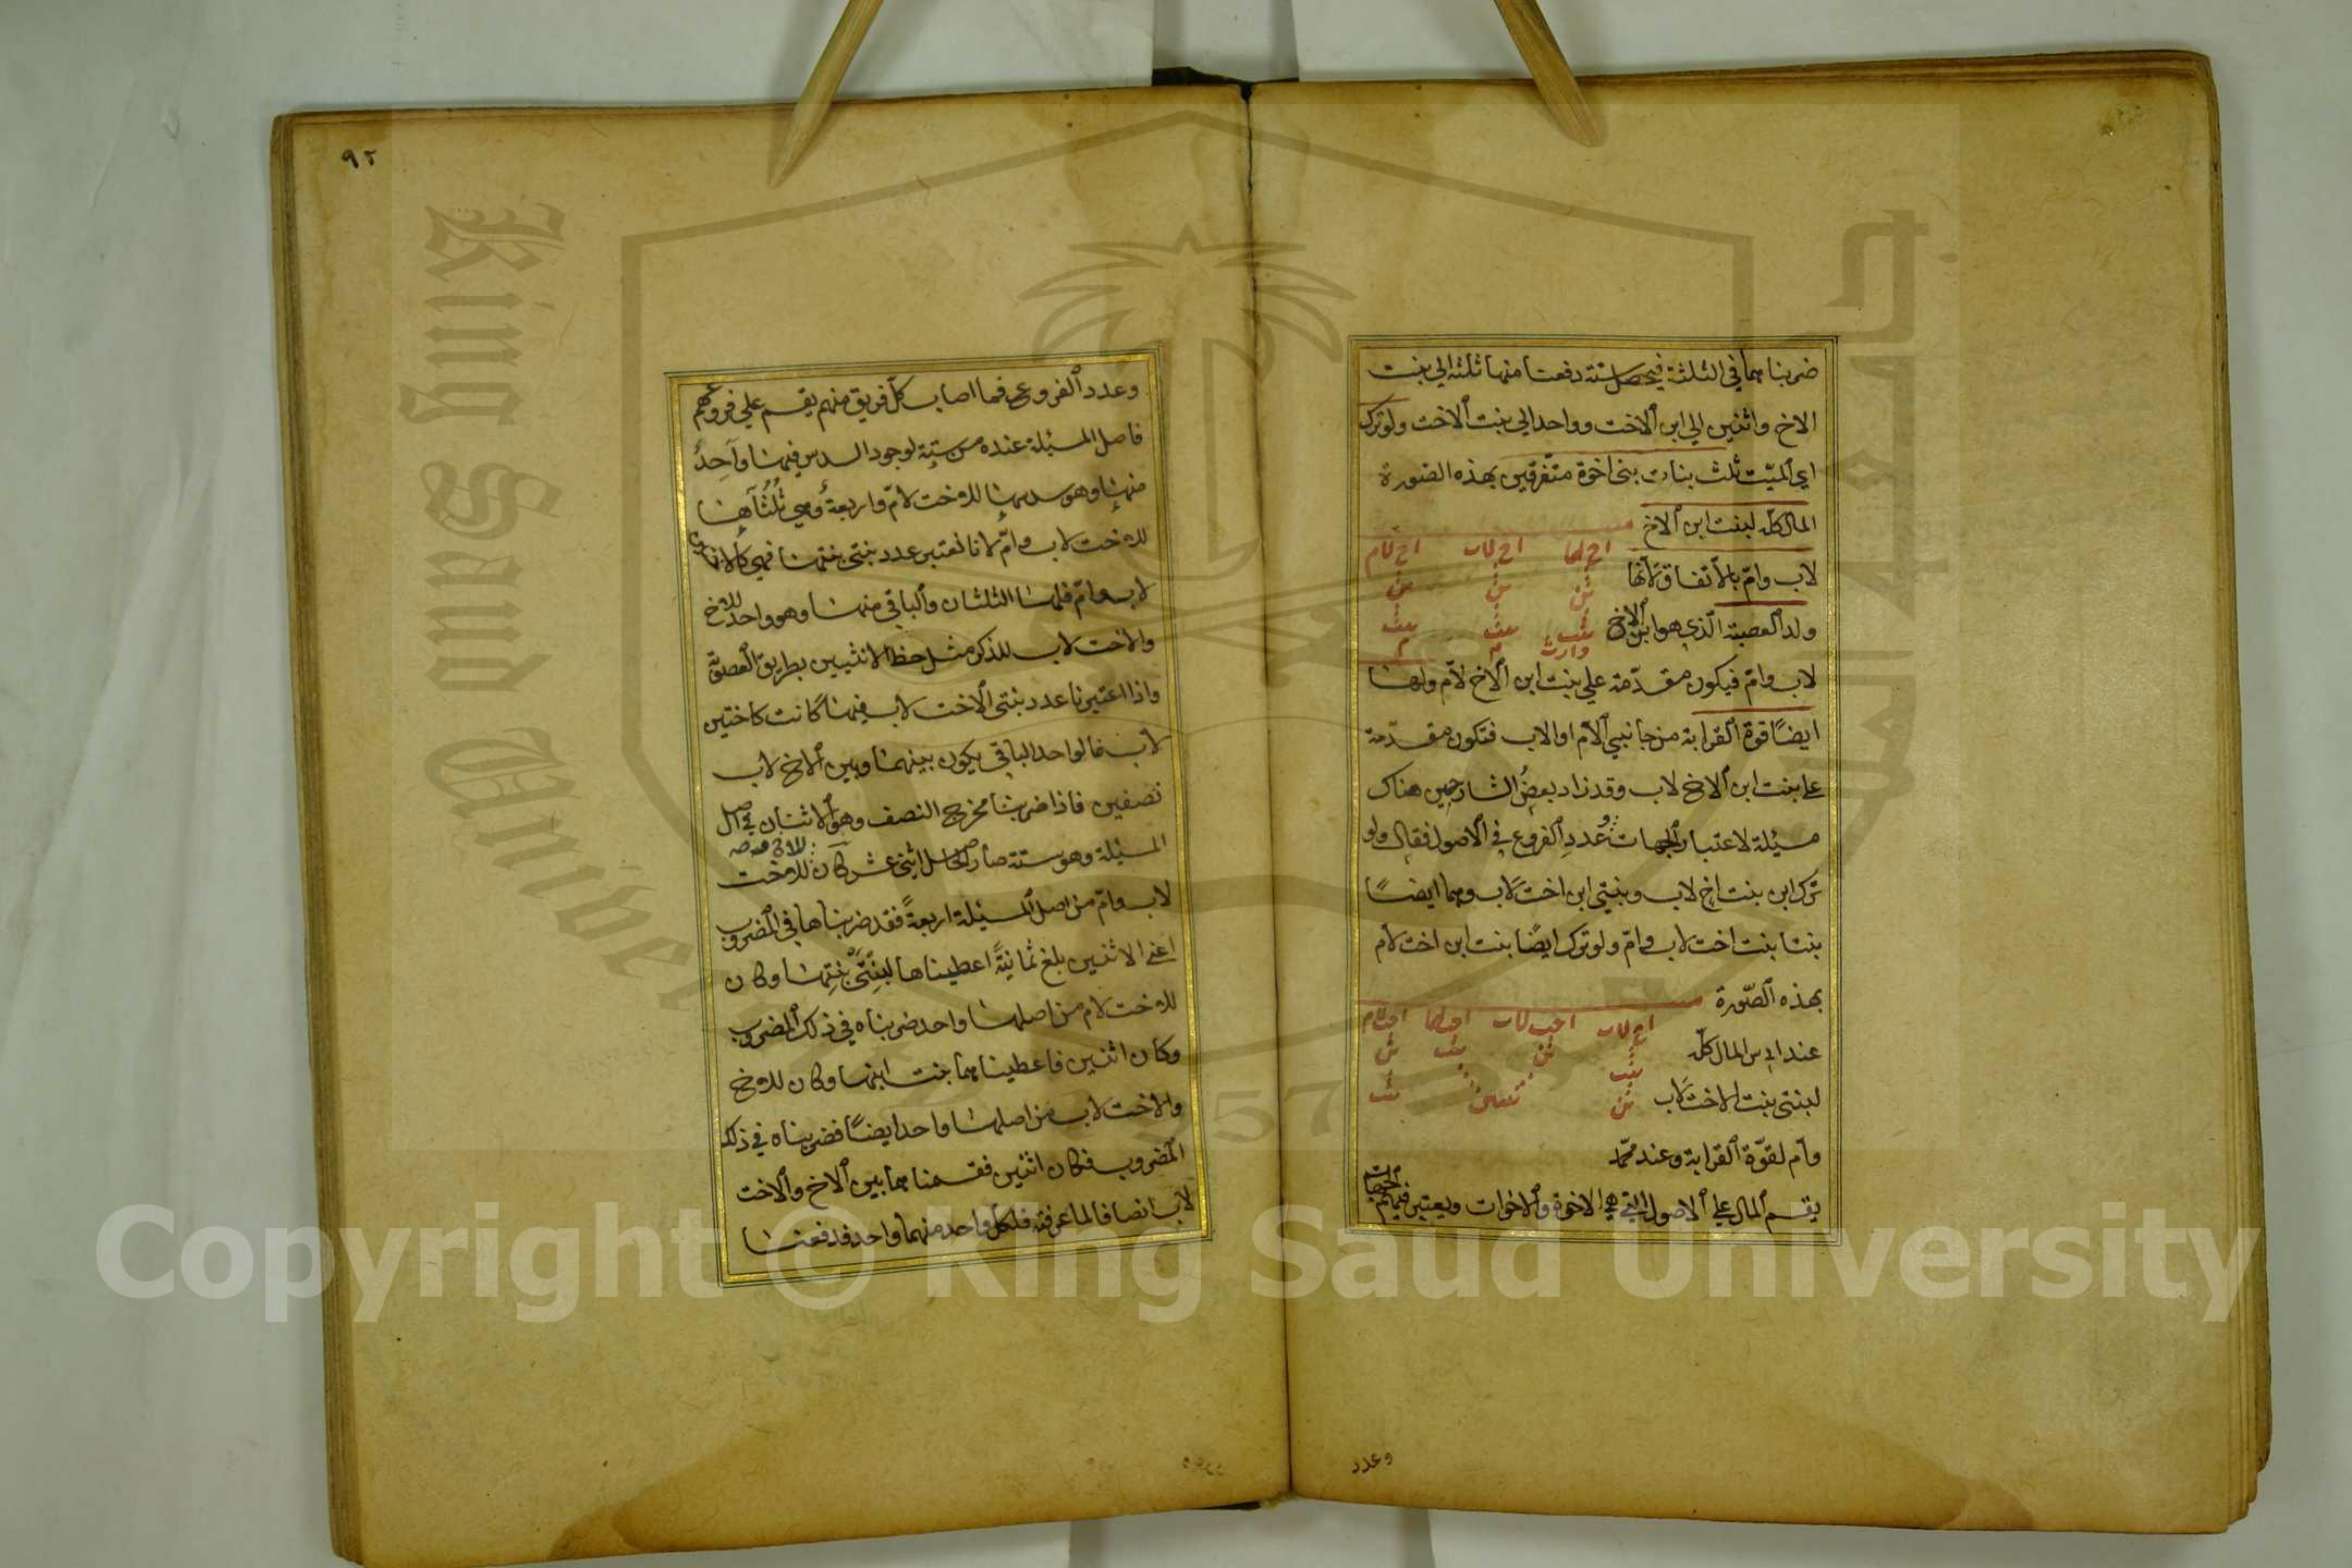 ضربناهما في الثلثة فيحصل ستة دفعنا منها ثلثة الى بنت
الاخ واثنين الى ابن الاخت وواحد الى بنت الاخت ولو ترك
اي الميّت ثلث بنات بني اخوة متفرقين بهذه الصورة
المال كله لبنت ابن الاخ
اخ لهما اخ لاب اخ لام
لاب وامّ بالاتفاق لانها
ابن ابن ابن
ولد العصبة الذي هو ابن الاخ
بنت بنت بنت
وارث م م
لاب وامّ فيكون مقدّمة على بنت ابن الاخ لام ولها
ايضًا قوة القرابة من جانبي الام او الاب فتكون مقدّمة
على بنت ابن الاخ لاب وقد زاد بعض الشارحين هناك
مسئلة لاعتبار الجهات وعدد الفروع في الاصول فقال ولو
ترك ابن بنت اخ لاب وبنتي ابن اخت لاب وهما ايضًا
بنتا بنت اخت لاب وامّ ولو ترك ايضًا بنت ابن اخت لام
بهذه الصّورة
اخ لاب اخت لاب اخت لهما اخت لام
عند ابي س المال كلّه
بنت ابن بنت ابن
لبنتي بنت الاخت لاب
ابن بنتين بنت
وام لقوّة القرابة وعند محمّد
يقسم المال على الاصول التي هي الاخوة والاخوات ويعتبر فيهم الجهات
وعدد
٩٢
وعدد الفروع فما اصاب كلّ فريق منهم يقسم على فروعهم
فاصل المسئلة عنده من ستة لوجود السدس فيها واحد
منها وهو سدسها للاخت لامّ واربعة وهي ثلثاها
للاخت لاب وامّ لانا نعتبر عدد بنتي بنتها فهي كالاختين
لاب وامّ فلها الثلثان والباقي منها وهو واحد للاخ
والاخت لاب للذكر مثل حظ الانثيين بطريق العصوبة
واذا اعتبرنا عدد بنتي الاخت لاب فيها كانت كاختين
لاب فالواحد الباقي يكون بينها وبين الاخ لاب
نصفين فاذا ضربنا مخرج النصف وهو الاثنان في اصل
المسئلة وهو ستة صار الحاصل اثني عشر كان للاخت
لاب وامّ من اصل المسئلة اربعةً فقد ضربناها في المضروب
اعني الاثنين بلغ ثمانيةً اعطيناها لبنتي بنتها وكان
للاخت لام من اصلها واحد ضربناه في ذلك المضروب
وكان اثنين فاعطيناهما بنت ابنها وكان للاخ
والاخت لاب من اصلها واحد ايضًا فضربناه في ذلك
المضروب فكان اثنين فقسمناهما بين الاخ والاخت
لاب انصافا لما عرفته فلكل واحد منهما واحد فدفعنا
Copyright © King Saud University
King Saud University
1957